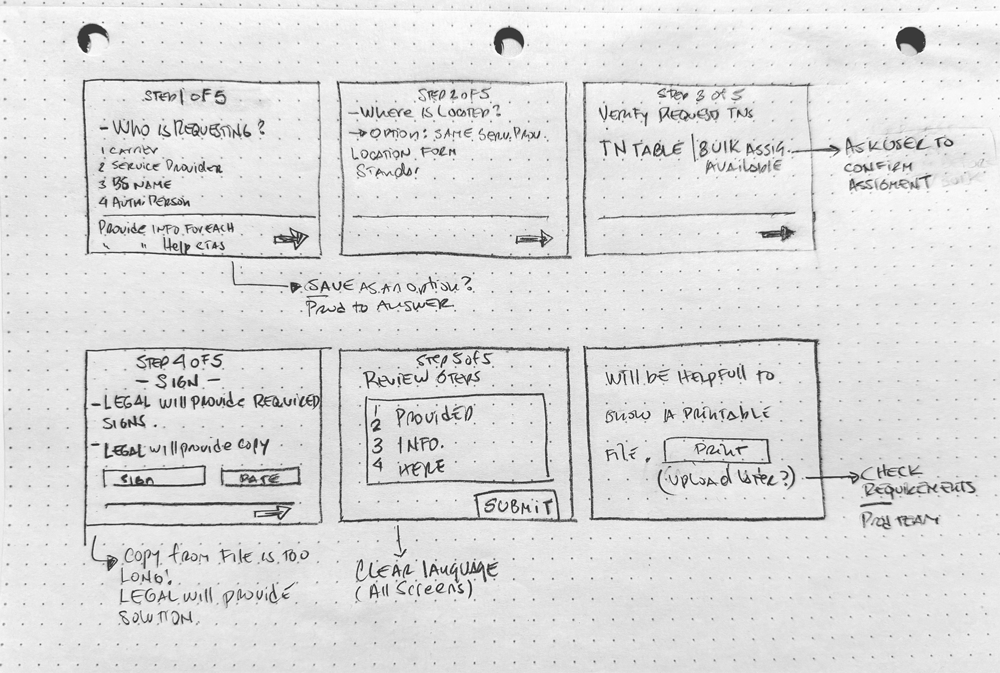 STEP 1 OF 5
- WHO IS REQUESTING?
1 CARRIER
2 SERVICE PROVIDER
3 BS NAME
4 AUTH. PERSON
PROVIDE INFO. FOR EACH
" " HELP CTAS
SAVE AS AN OPTION?
PROD TO ANSWER
STEP 2 OF 5
- WHERE IS LOCATED?
→ OPTION: SAME SERV. PROV.
LOCATION FORM
STEP 3 of 5
VERIFY REQUEST TNS
TN TABLE | BULK ASSIG.
AVAILABLE
ASK USER TO
CONFIRM
ASSIGMENT
STEP 4 OF 5
- SIGN -
- LEGAL WILL PROVIDE REQUIRED
SIGNS.
- LEGAL will provide COPY
SIGN DATE
COPY FROM FILE IS TOO
LONG!
LEGAL WILL PROVIDE
SOLUTION.
STEP 5 of 5
REVIEW STEPS
1
2 PROVIDED
3 INFO.
4 HERE
SUBMIT
CLEAR LANGUAGE
(All Screens)
WILL BE HELPFULL TO
SHOW A PRINTABLE
FILE. PRINT
(UPLOAD LATER?)
CHECK
REQUIREMENTS
PROD TEAM